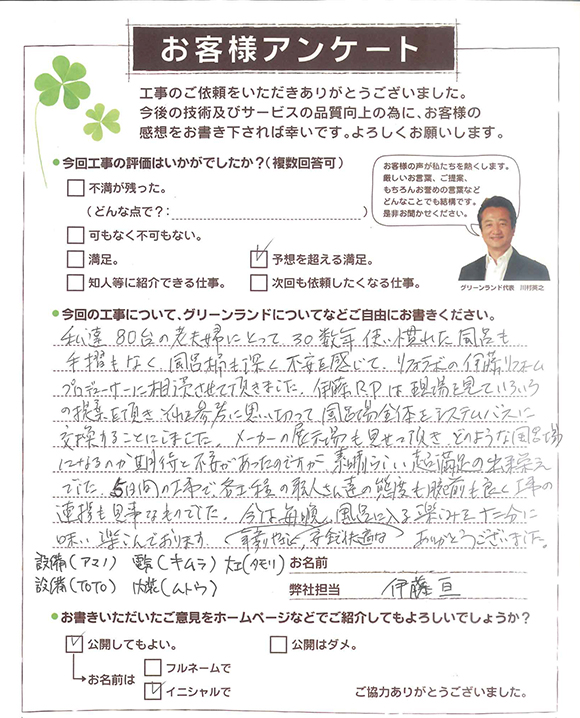 お客様アンケート
工事のご依頼をいただきありがとうございました。
今後の技術及びサービスの品質向上の為に、お客様の
感想をお書き下されば幸いです。よろしくお願いします。
今回工事の評価はいかがでしたか?(複数回答可)
不満が残った。
(どんな点で?: )
可もなく不可もない。
満足。
予想を超える満足。
知人等に紹介できる仕事。
次回も依頼したくなる仕事。
お客様の声が私たちを熱くします。
厳しいお言葉、ご提案、
もちろんお誉めの言葉など
どんなことでも結構です。
是非お聞かせください。
グリーンランド代表 川村英之
今回の工事について、グリーンランドについてなどご自由にお書きください。
私達80台の老夫婦にとって30数年使い慣れた風呂も
手摺もなく風呂桶も深く不安を感じて、リフォラボの伊藤リフォーム
プロデューサーに相談させて頂きました。伊藤R.Pは現場を見ていろいろ
の提案を頂き、それを参考に思い切って風呂場全体をシステムバスに
交換することにしました。メーカーの展示場も見せて頂き、どのような風呂場
になるのか期待と不安があったのですが素晴らしい超満足の出来栄え
でした。5日間の工事で各工程の職人さん達の態度も腕前も良く工事の
連携も見事なものでした。今は毎晩、風呂に入る楽しみを十二分に
味い楽しんでおります。 ありがとうございました。
設備(アマノ) 電気(キムラ) 大工(タモリ)
お名前
設備(TOTO) 内装(ムトウ)
弊社担当 伊藤 亘
お書きいただいたご意見をホームページなどでご紹介してもよろしいでしょうか?
公開してもよい。
公開はダメ。
お名前は
フルネームで
イニシャルで
ご協力ありがとうございました。